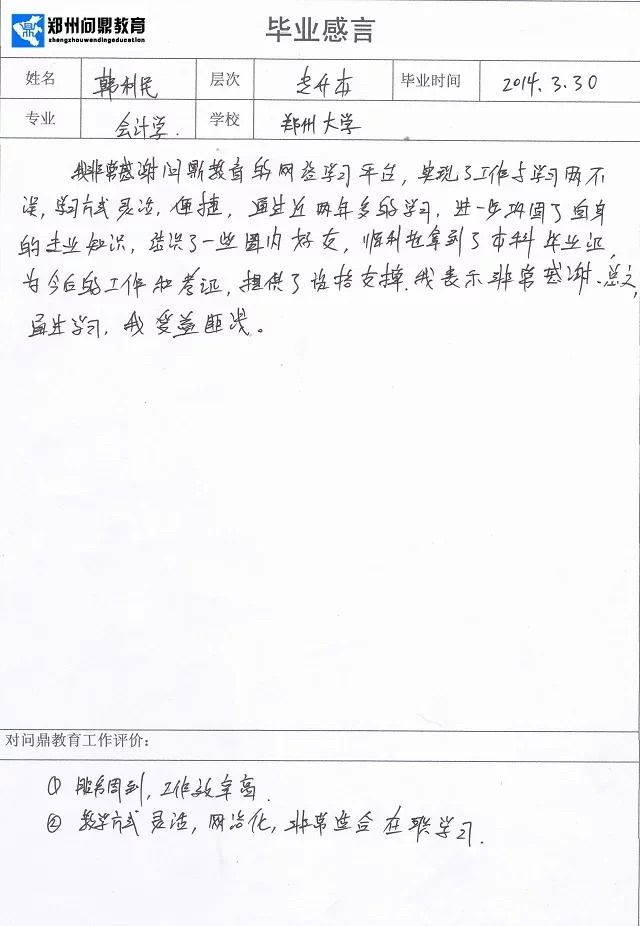 郑州问鼎教育
zhengzhouwendingeducation
毕业感言
姓名 韩利民 层次 专升本 毕业时间 2014.3.30
专业 会计学. 学校 郑州大学
我非常感谢问鼎教育的网络学习平台,实现了工作与学习两不
误,学习方式灵活,便捷,通过近两年多的学习,进一步巩固了自身
的专业知识,结识了一些圈内好友,顺利起拿到了本科毕业证,
为今后的工作和考证,提供了支撑.我表示非常感谢.总之,
通过学习,我受益匪浅。
对问鼎教育工作评价:
① 服务周到,工作效率高.
② 教学方式灵活,网络化,非常适合在职学习.